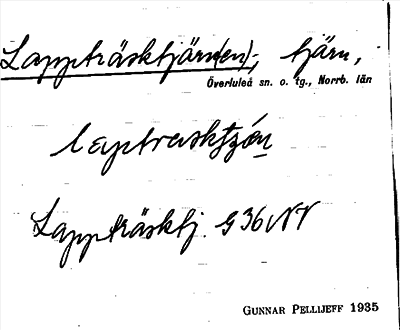 Lappträsktjärn(en), tjärn,
Överluleå sn. o. tg., Norrb. län
Lappträsktj. G 36 NV
GUNNAR PELLIJEFF 1935